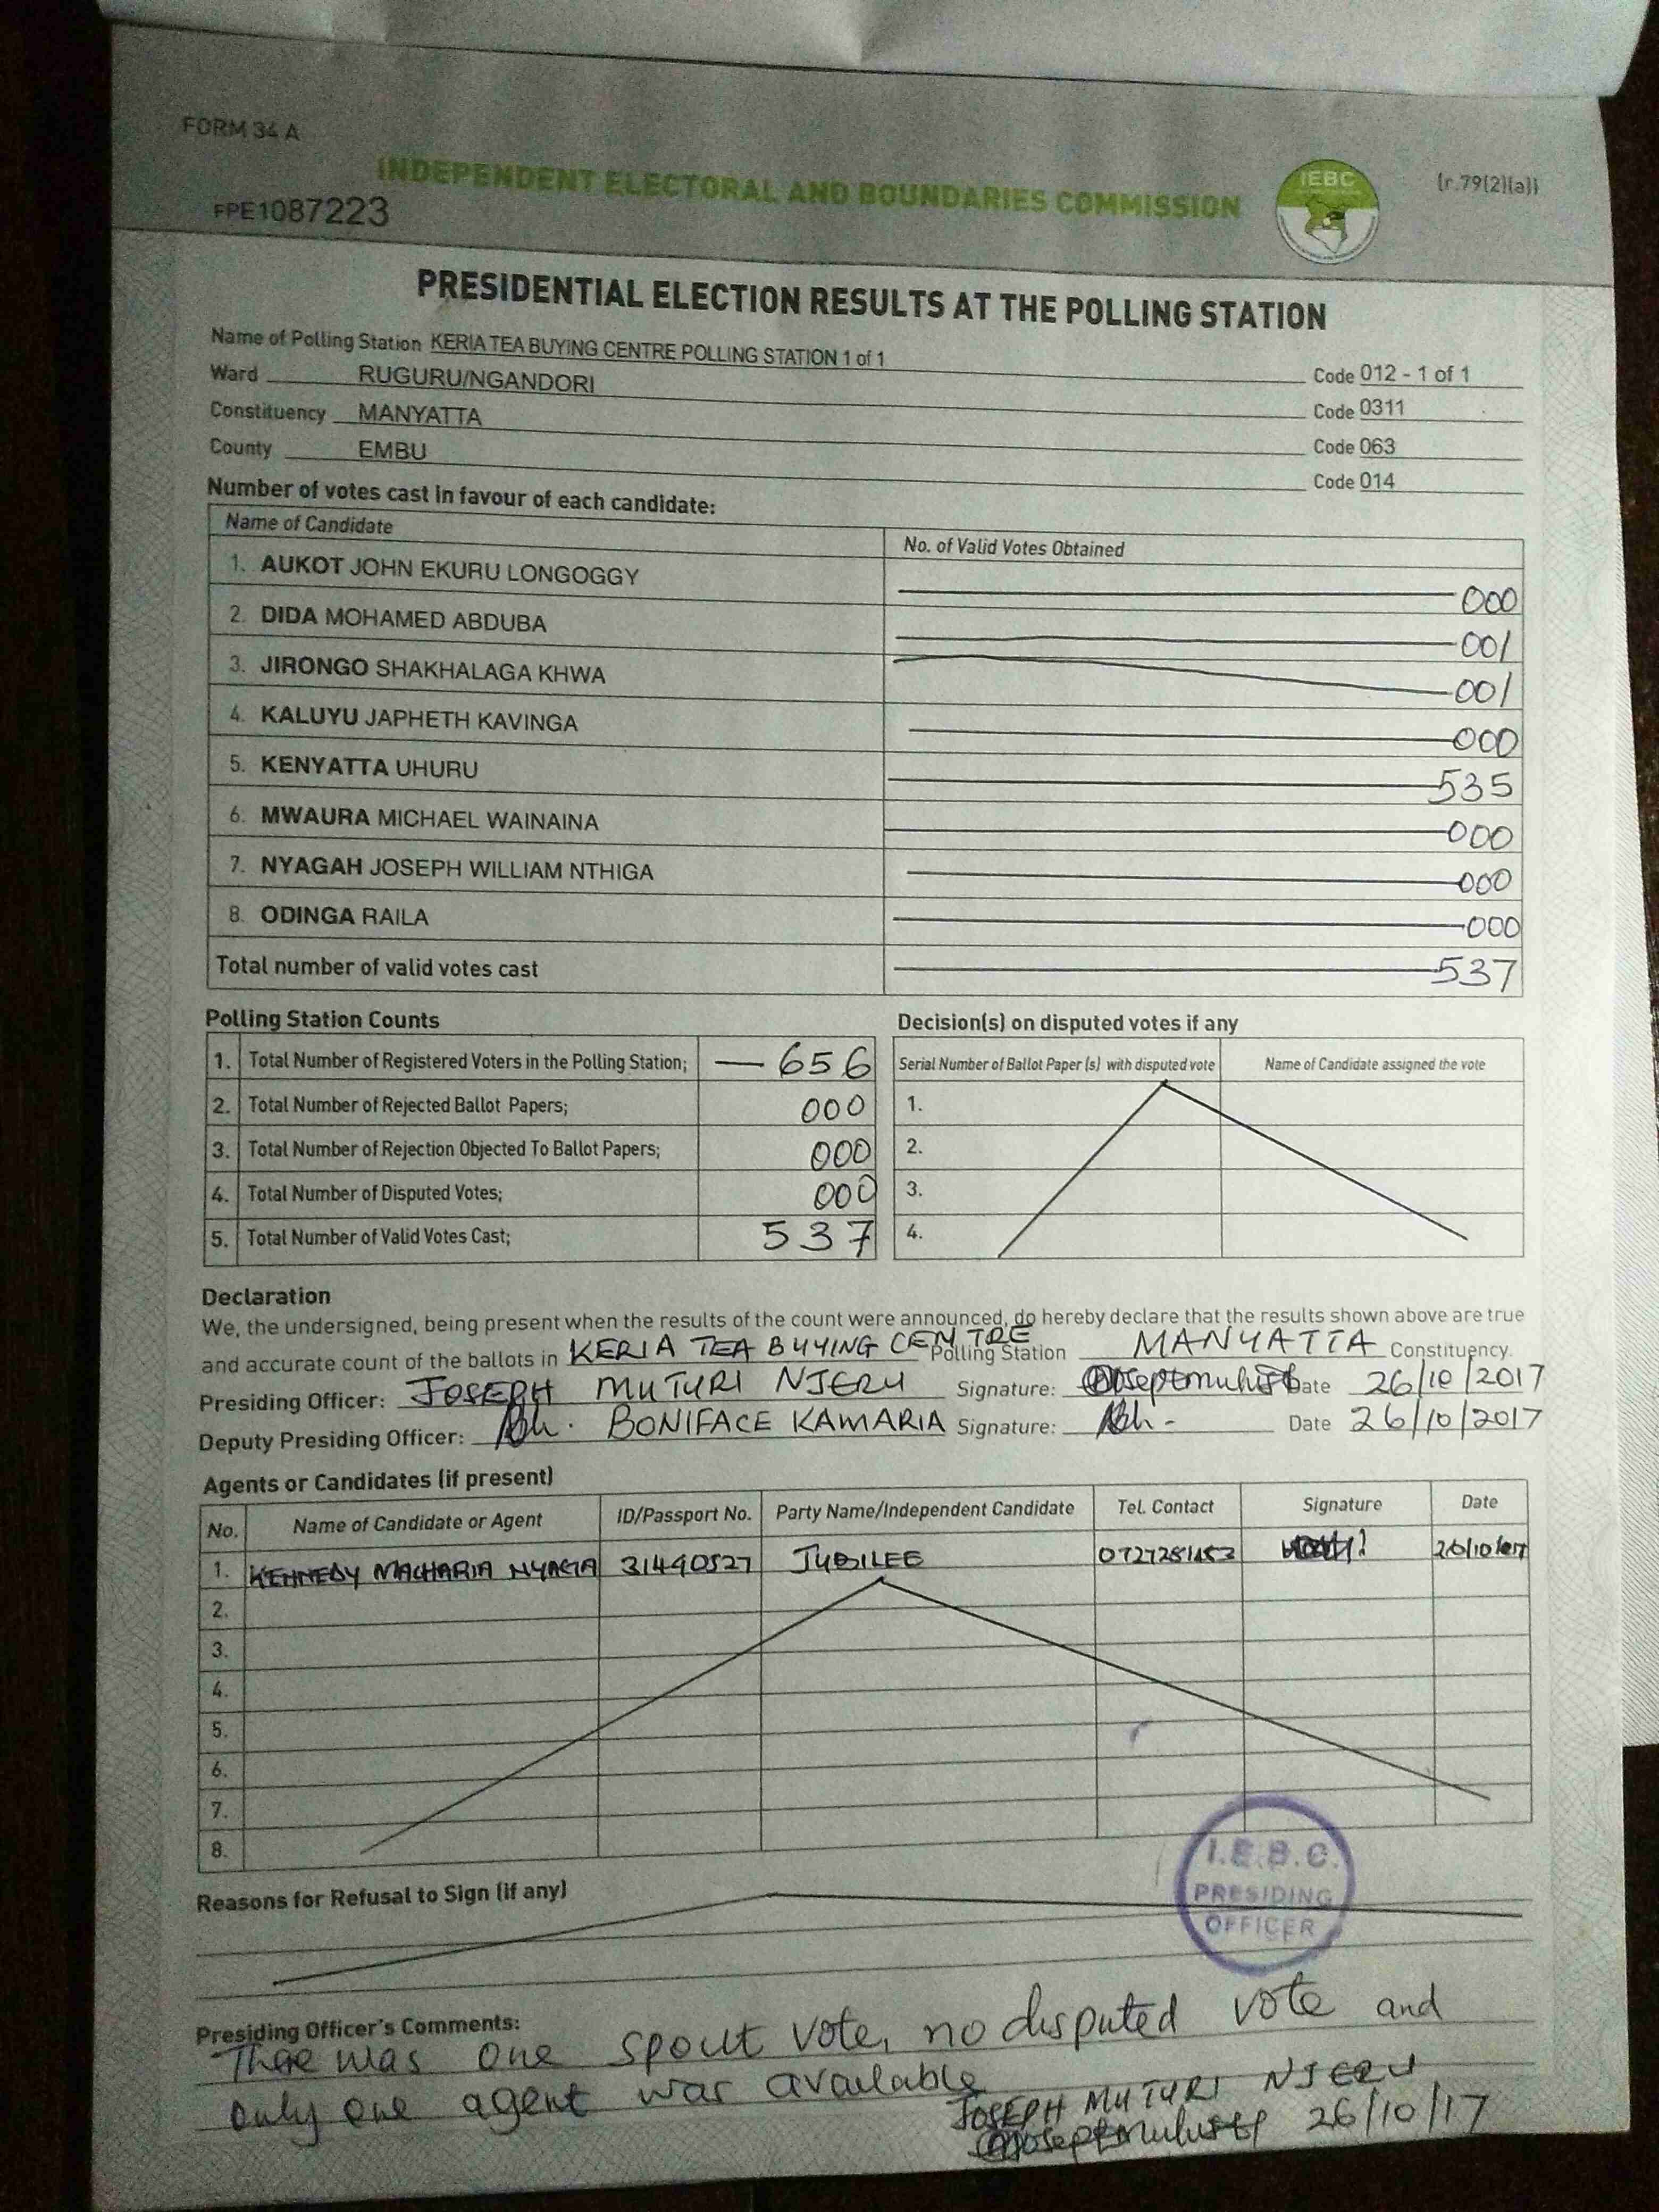 FORM 34 A
INDEPENDENT ELECTORAL AND BOUNDARIES COMMISSION
IEBC
(r.79(2)(a))
FPE1087223
PRESIDENTIAL ELECTION RESULTS AT THE POLLING STATION
Name of Polling Station KERIA TEA BUYING CENTRE POLLING STATION 1 of 1 Code 012 - 1 of 1
Ward RUGURU/NGANDORI Code 0311
Constituency MANYATTA Code 063
County EMBU Code 014
Number of votes cast in favour of each candidate:
Name of Candidate No. of Valid Votes Obtained
1. AUKOT JOHN EKURU LONGOGGY 000
2. DIDA MOHAMED ABDUBA 001
3. JIRONGO SHAKHALAGA KHWA 001
4. KALUYU JAPHETH KAVINGA 000
5. KENYATTA UHURU 535
6. MWAURA MICHAEL WAINAINA 000
7. NYAGAH JOSEPH WILLIAM NTHIGA 000
8. ODINGA RAILA 000
Total number of valid votes cast 537
Polling Station Counts
1. Total Number of Registered Voters in the Polling Station; 656
2. Total Number of Rejected Ballot Papers; 000
3. Total Number of Rejection Objected To Ballot Papers; 000
4. Total Number of Disputed Votes; 000
5. Total Number of Valid Votes Cast; 537
Decision(s) on disputed votes if any
Serial Number of Ballot Paper (s) with disputed vote Name of Candidate assigned the vote
1.
2.
3.
4.
Declaration
We, the undersigned, being present when the results of the count were announced, do hereby declare that the results shown above are true
and accurate count of the ballots in KERIA TEA BUYING CENTRE Polling Station MANYATTA Constituency.
Presiding Officer: JOSEPH MUTURI NJERU Signature: Date 26/10/2017
Deputy Presiding Officer: BONIFACE KAMARIA Signature: Date 26/10/2017
Agents or Candidates (if present)
No. Name of Candidate or Agent ID/Passport No. Party Name/Independent Candidate Tel. Contact Signature Date
1. KENNEDY MACHARIA 31490527 JUBILEE
2.
3.
4.
5.
6.
7.
8.
I.E.B.C.
PRESIDING
OFFICER
Reasons for Refusal to Sign (if any)
Presiding Officer's Comments:
There was one spoilt vote, no disputed vote and
only one agent was available
JOSEPH MUTURI NJERU
26/10/17